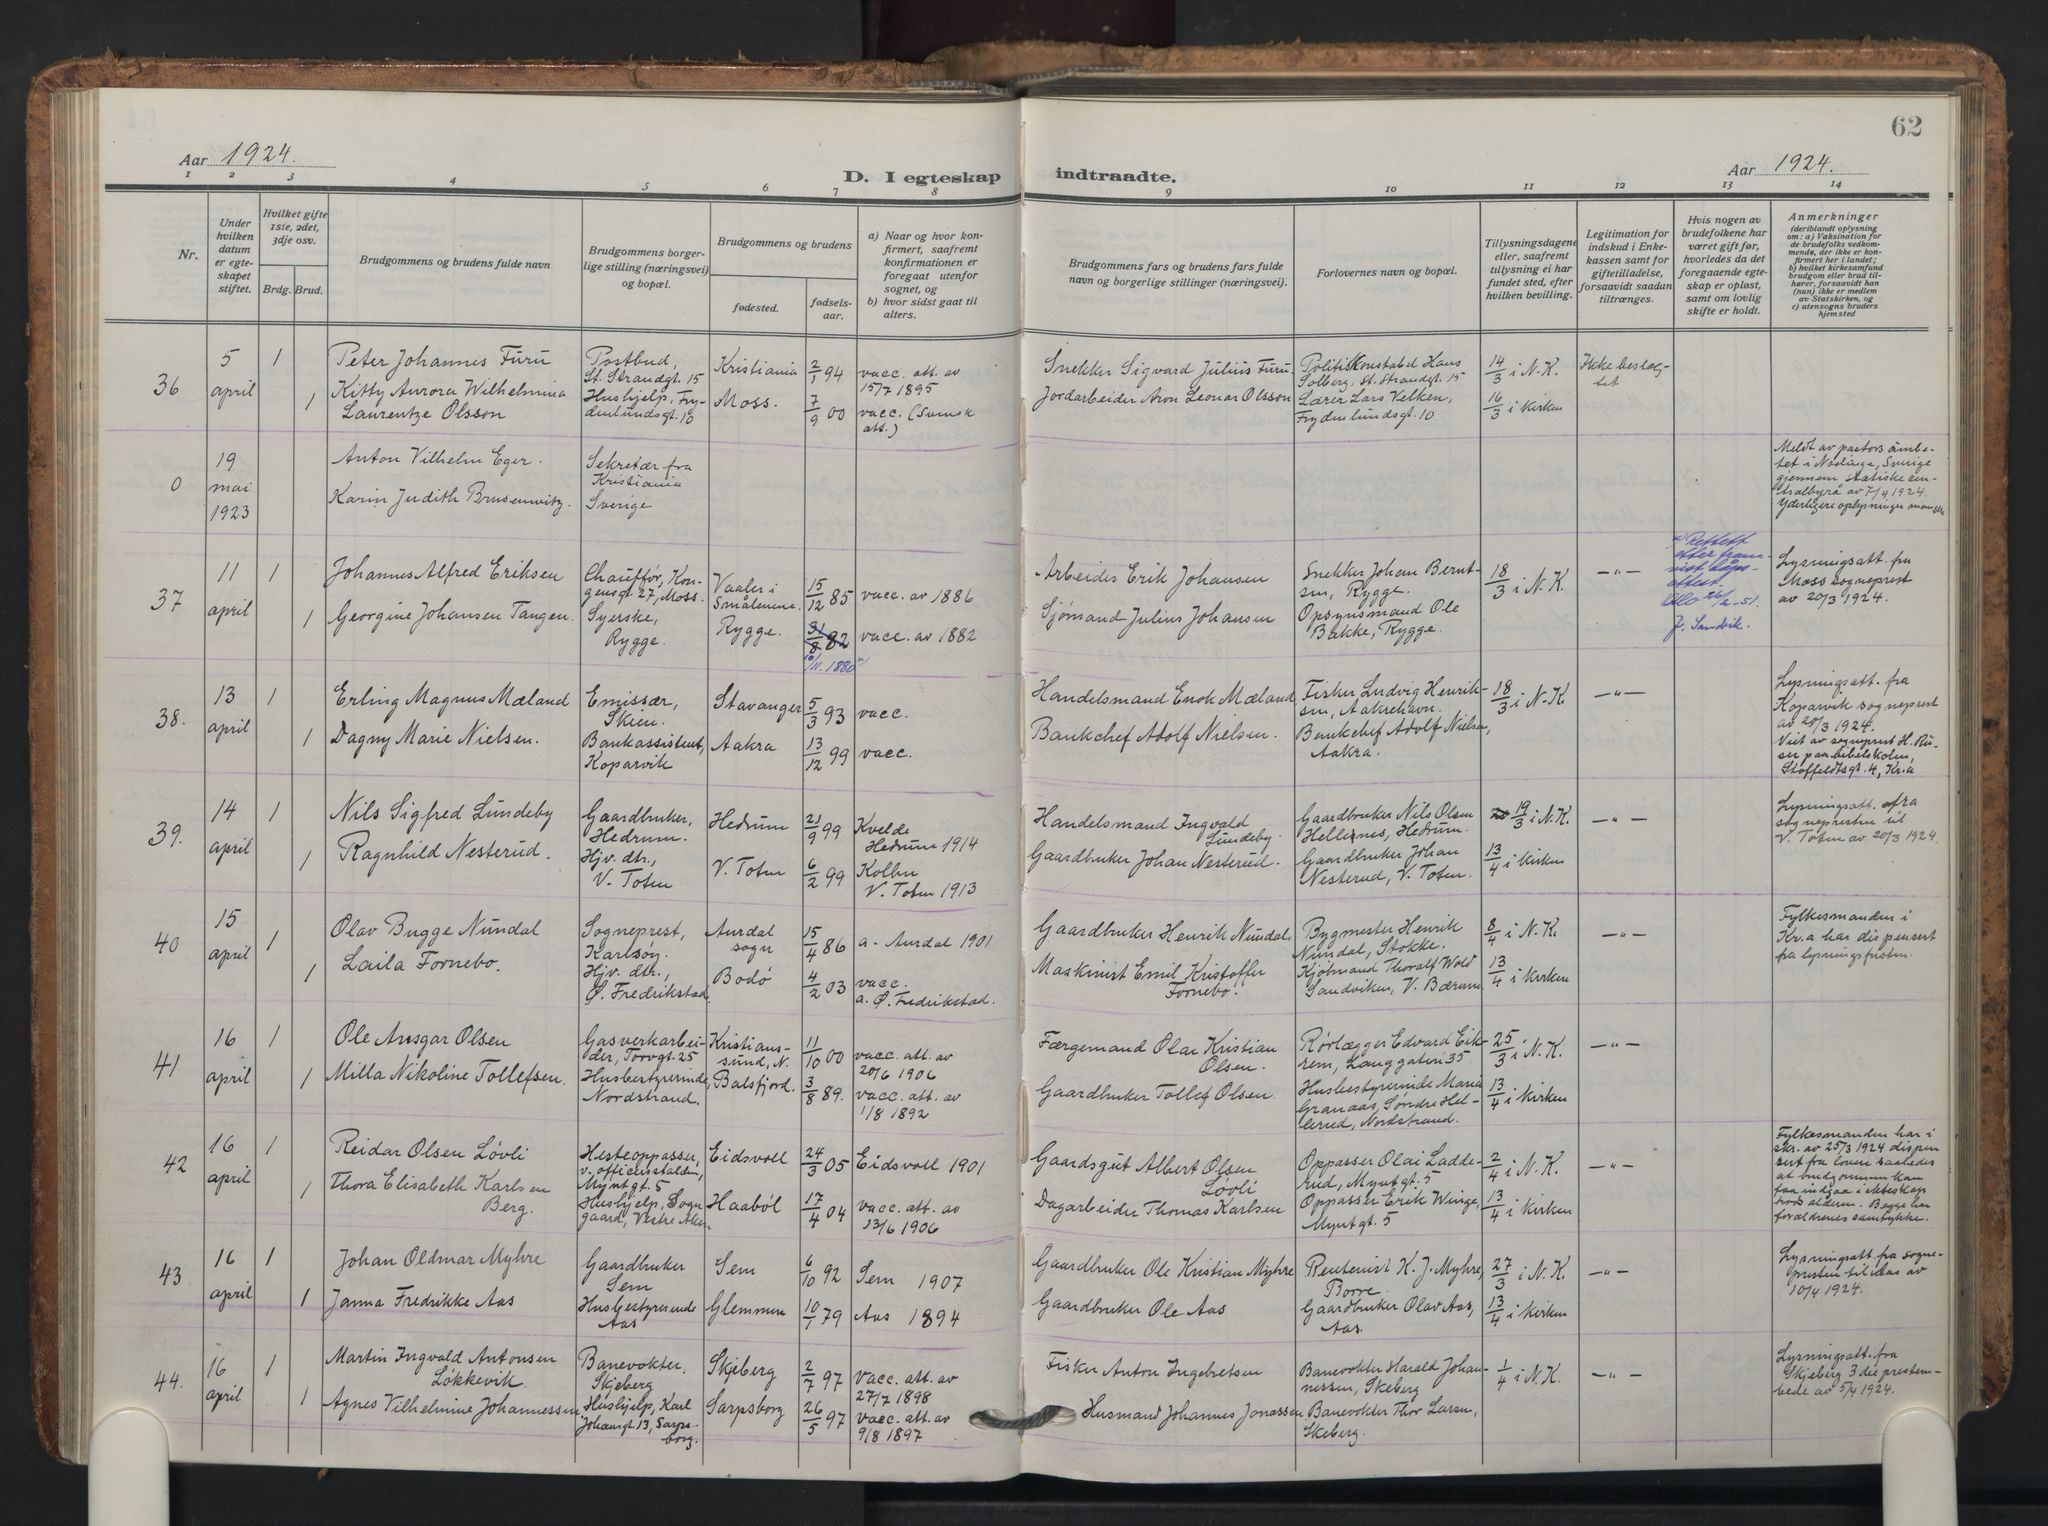 62
Aar 1924.
Aar 1924.
D. I egteskap indtraadte.
1 2 3 4 5 6 7 8 9 10 11 12 13 14
Nr.
Under hvilken datum er egteskapet stiftet.
Hvilket gifte 1ste, 2det, 3dje osv.
Brdg. Brud.
Brudgommens og brudens fulde navn
Brudgommens borgerlige stilling (næringsvei) og bopæl.
Brudgommens og brudens
fødested.
fødselsaar.
a) Naar og hvor konfirmert, saafremt konfirmationen er foregaat utenfor sognet, og
b) hvor sidst gaat til alters.
Brudgommens fars og brudens fars fulde navn og borgerlige stillinger (næringsvei).
Forlovernes navn og bopæl.
Tillysningsdagene eller, saafremt tillysning ei har fundet sted, efter hvilken bevilling.
Legitimation for indskud i Enkekassen samt for giftetilladelse, forsaavidt saadan tiltrænges.
Hvis nogen av brudefolkene har været gift før, hvorledes da det foregaaende egteskap er opløst, samt om lovlig skifte er holdt.
Anmerkninger
(deriblandt oplysning om: a) Vaksination for de brudefolks vedkommende, der ikke er konfirmert her i landet; b) hvilket kirkesamfund brudgom eller brud tilhører, forsaavidt han (hun) ikke er medlem av Statskirken, og c) utensogns bruders hjemsted
36
5 april
1
Peter Johannes Furu
Postbud, St. Strandgt. 15
Kristiania
2/1 94
vacc. att. av 15/7 1895
Snekker Sigvard Julius Furu
Politikonstabel Hans Solberg, St. Strandgt. 15
14/3 i N.K.
Ikke beslegtet
1
Kitty Aurora Wilhelmina Laurentze Olsson
Hushjelp, Frydenlundsgt. 10
Moss.
7/9 00
vacc. (Svensk att.)
Jordarbeider Aron Leonar Olsson
Lærer Lars Velken, Frydenlundsgt. 10
16/3 i kirken
0
19 mai 1923
Anton Vilhelm Eger.
Sekretær fra Kristiania
Karin Judith Brusenwitz.
Sverige
Meldt av pastorsämbetet i Sverige gjennem statiske centralbyrå av 7/4 1924. Yderligere oplysninger
37
11 april
1
Johannes Alfred Eriksen
Chauffør, Kongensgt. 27, Moss.
Vaaler i Smålenene
15/12 85
vacc. av 1886
Arbeider Erik Johansen
Snekker Johan Berntsen, Rygge.
18/3 i N.K.
—"—
Rettet efter fremvist dåpsattest. Oslo 26/2-51. J. Sandvik.
Lysningsatt. fra Moss sogneprest av 20/3 1924.
1
Georgine Johansen Tangen.
Syerske, Rygge.
Rygge.
31/8 82
10/11. 1880
vacc. av 1882
Sjømand Julius Johansen
Opsynsmand Ole Bakke, Rygge.
38.
13 april
1
Erling Magnus Mæland
Emissær, Skien.
Stavanger
5/3 93
vacc.
Handelsmand Enok Mæland
Fisker Ludvig Henriksen, Aakrehavn.
18/3 i N.K
—"—
Lysningsatt. fra Koparvik sogneprest av 20/3 1924.
Viet av sogneprest H. paa bibelskolen, Staffeldtsgt. 4, Kr.a
1
Dagny Marie Nielsen.
Bankassistent, Koparvik
Aakra
13/12 99
vacc.
Bankchef Adolf Nielsen.
Bankchef Adolf Nielsen, Aakra.
39.
14 april
1
Nils Sigfred Lundeby
Gaardbruker, Hedrum.
Hedrum
21/9 99
Kvelde Hedrum 1914
Handelsmand Ingvald Lundeby.
Gaardbruker Nils Olsen Hellenes, Hedrum.
19/3 i N.K.
—"—
Lysningsatt. fra sognepresten til V. Toten av 20/3 1924
1
Ragnhild Nesterud.
Hjv. dtr., V. Toten
V. Toten
6/2 99
Kolbu V. Toten 1913
Gaardbruker Johan Nesterud.
Gaardbruker Johan Nesterud, V. Toten.
13/4 i kirken
40
15 april
1
Olav Bugge Nundal
Sogneprest, Karlsøy.
Aurdal sogn
15/4 86
a. Aurdal 1901
Gaardbruker Henrik Nundal.
Bygmester Henrik Nundal, Stokke.
8/4 i N.K.
—"—
Fylkesmanden i Kr.a har dispensert fra lysningsfristen.
1
Laila Fornebo.
Hjv. dtr., Ø. Fredrikstad
Bodö
4/2 03
vacc. a. Ø. Fredrikstad.
Maskinist Emil Kristoffer Fornebo.
Kjøbmand Thoralf Wold Sandviken, V. Bærum
13/4 i kirken
41
16 april
1
Ole Ansgar Olsen
Gasverkarbeider, Torvgt. 25
Kristianssund, N.
11/10 00
vacc. att. av 20/6 1906
Færgemand Olai Kristian Olsen.
Rørlægger Edvard Eikrem, Langgaten 35
25/3 i N.K.
—"—
1
Milla Nikoline Tollefsen.
Husbestyrerinde, Nordstrand.
Balsfjord.
3/8 89.
vacc. att. av 1/8 1892
Gaardbruker Tollef Olsen.
Husbestyrerinde Marie Granaas, Søndre Hellerud, Nordstrand.
13/4 i kirken
42
16 april
1
Reidar Olsen Løvli
Hesteoppasser, v. officersstalden, Myntgt. 5
Eidsvoll
24/3 05
Eidsvoll 1901
Gaardsgut Albert Olsen Løvli
Oppasser Olai Ladderud, Myntgt. 5
2/4 i N.K.
—"—
Fylkesmanden har i skr. av 25/3 1924 dispensert fra loven saaledes at brudgommen kan faa indgaa i ekteskap alderen. Begge har forældrenes samtykke.
1
Thora Elisabeth Karlsen Berg.
Hushjelp, Sogn gaard, Vestre Aker
Haaböl
17/4 04
vacc. att. av 13/6 1906
Dagarbeider Thomas Karlsen
Oppasser Erik Winge, Myntgt. 5
13/4 i kirken
43
16 april
1
Johan Oldmar Myhre
Gaardbruker Sem
Sem
6/10 92
Sem 1907
Gaardbruker Ole Kristian Myhre
Rentenist K. J. Myhre, Borre.
27/3 i N.K.
—"—
Lysningsatt. fra sognepresten til Aas av 10/4 1924.
1
Janna Fredrikke Aas
Husbestyrerinde Aas
Glemmen
10/1 79
Aas 1894
Gaardbruker Ole Aas
Gaardbruker Olav Aas, Aas.
13/4 i kirken
44.
16 april
1
Martin Ingvald Antonsen Løkkevik.
Banevokter. Skjeberg
Skjeberg
2/7 97
vacc. att. av 27/7 1898
Fisker Anton Ingebretsen
Banevokter Harald Johannessen, Skeberg
1/4 i N.K.
—"—
Lysningsatt. fra Skjeberg 3die prestembede av 5/4 1924.
1
Agnes Vilhelmine Johannessen
Hushjelp, Karl Johansgt. 13, Sarpsborg.
Sarpsborg
26/5 97
vacc. att. av 9/8 1897
Husmand Johannes Jonassen
Banevokter Thor Larsen, Skeberg.